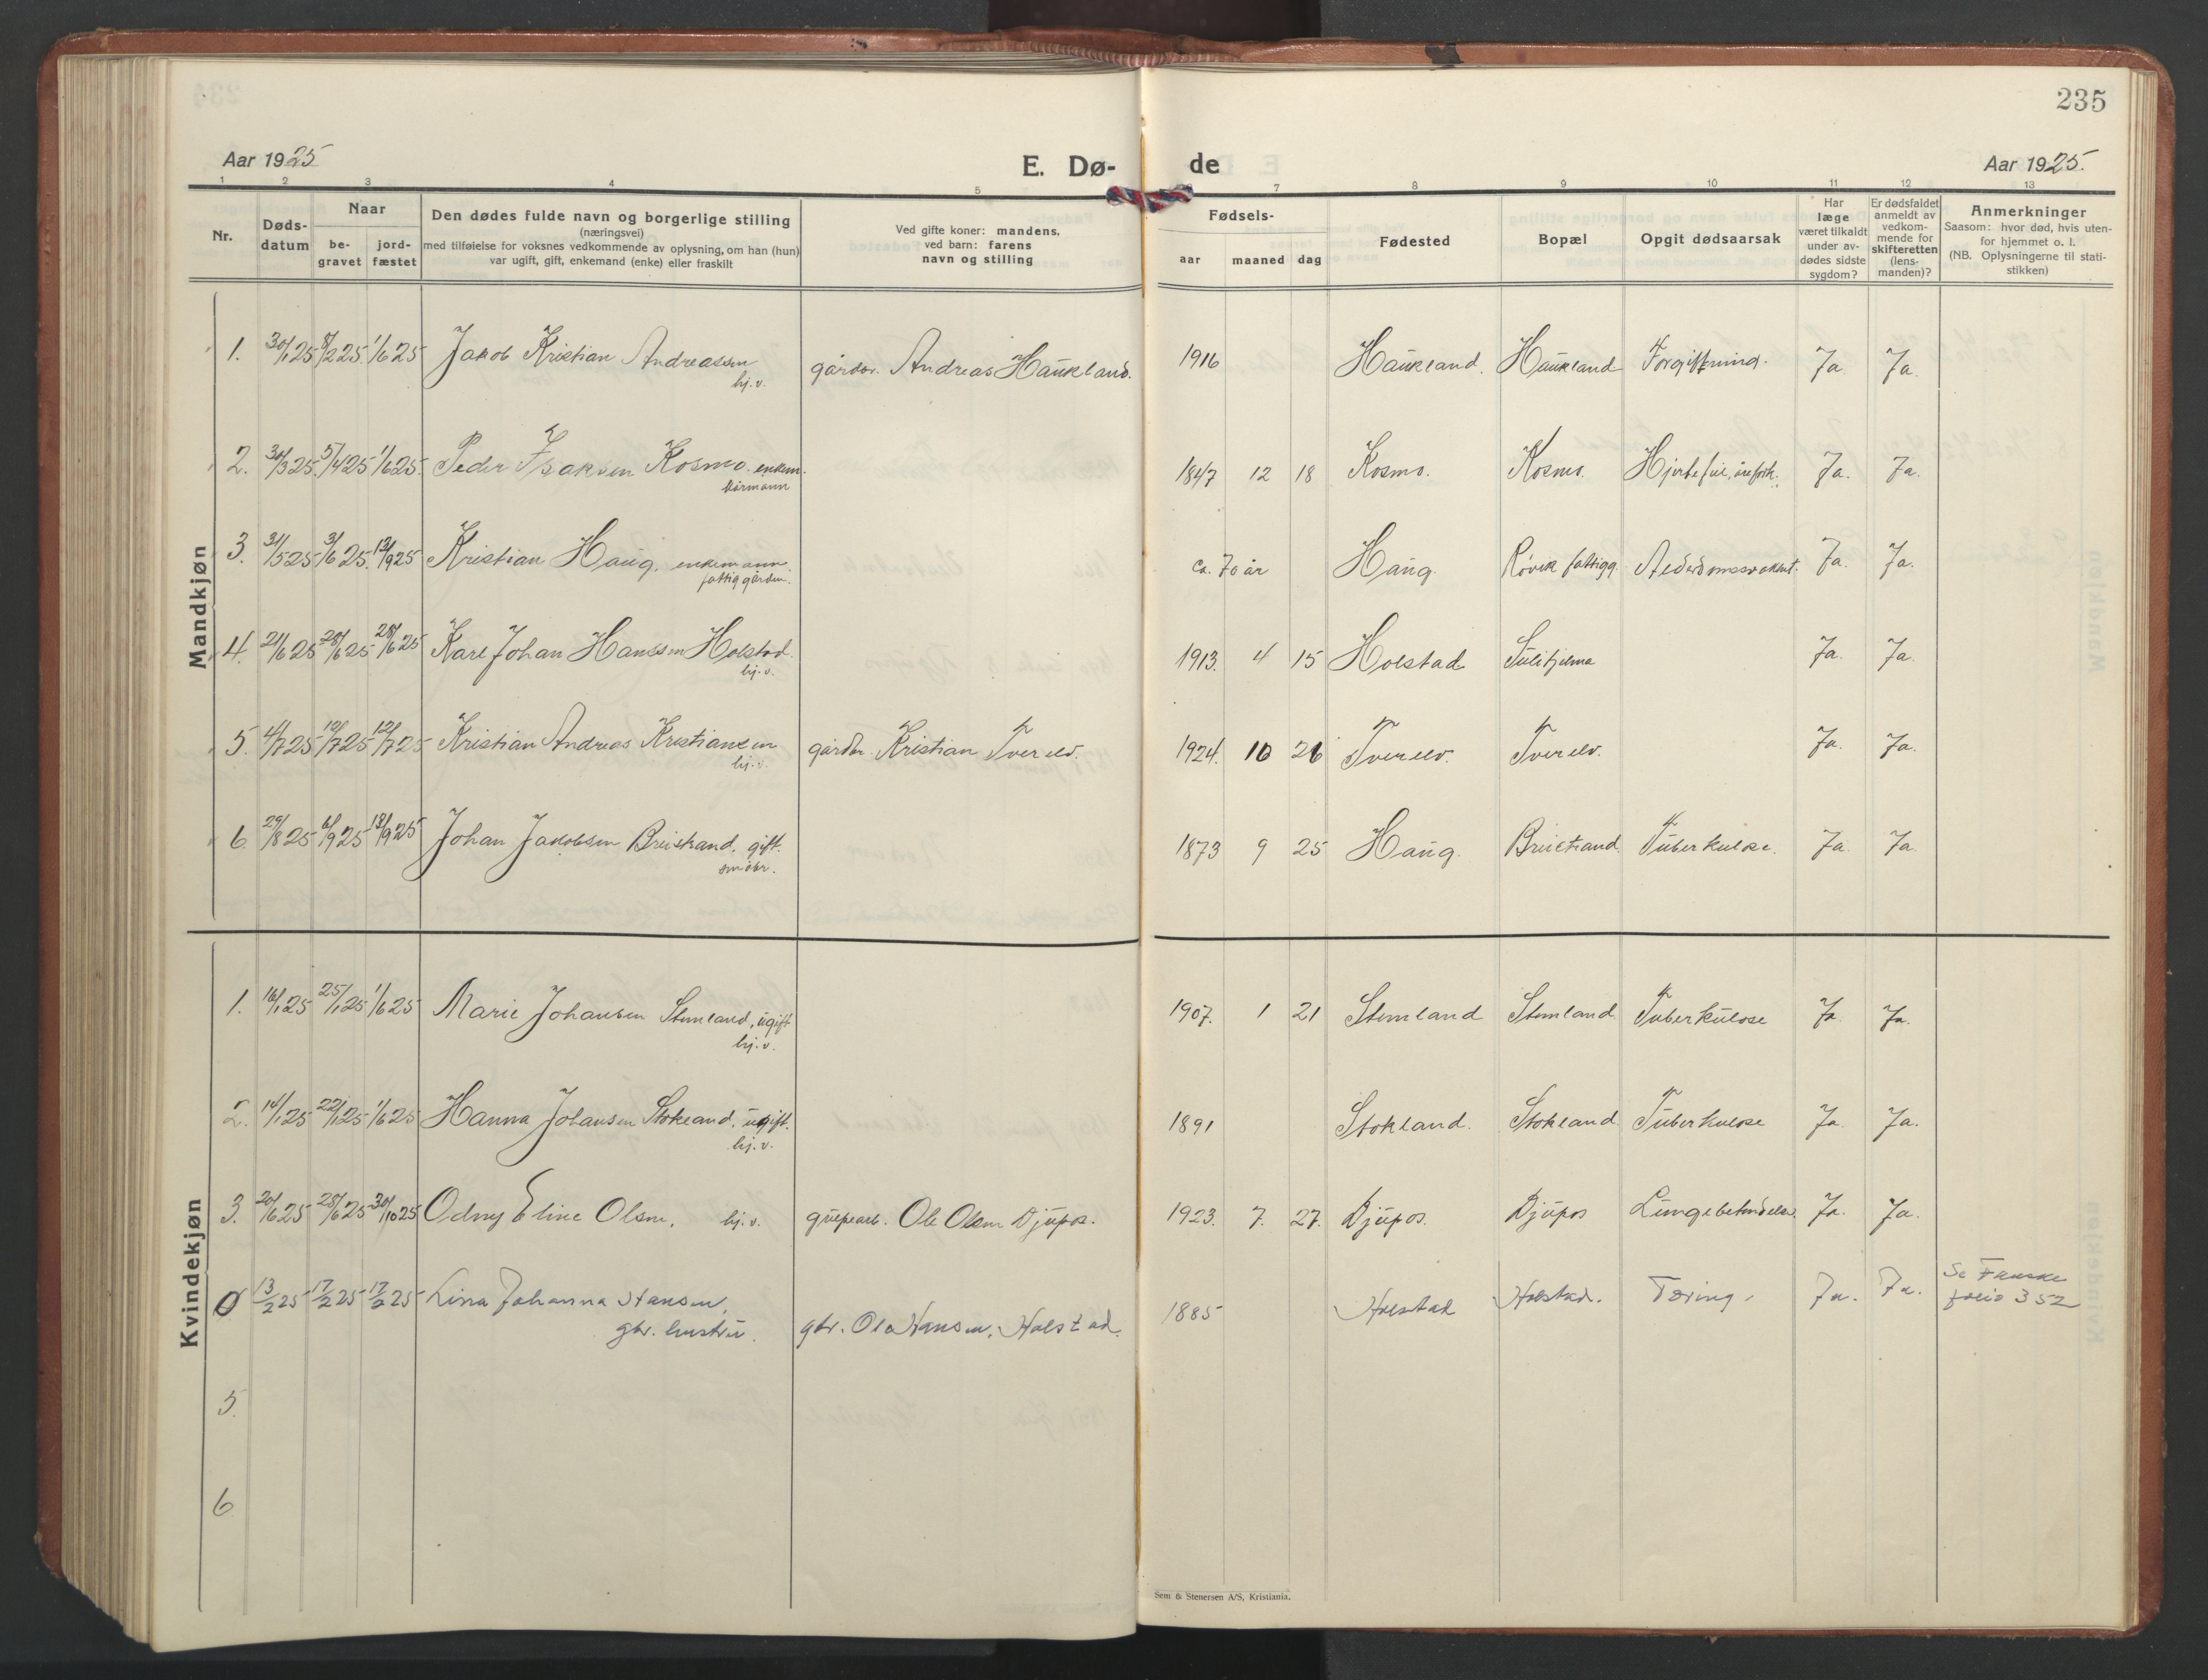 235
Aar 1925
E. Dø-
de
Aar 1925.
1 2 3 4 5 7 8 9 10 11 12 13
Nr.
Døds-
datum
Naar
be-
gravet
jord-
fæstet
Den dødes fulde navn og borgerlige stilling
(næringsvei)
med tilføielse for voksnes vedkommende av oplysning, om han (hun)
var ugift, gift, enkemand (enke) eller fraskilt
Ved gifte koner: mandens,
ved barn: farens
navn og stilling
Fødsels-
aar maaned dag
Fødested
Bopæl
Opgit dødsaarsak
Har
læge
været tilkaldt
under av-
dødes sidste
sygdom?
Er dødsfaldet
anmeldt av
vedkom-
mende for
skifteretten
(lens-
manden)?
Anmerkninger
Saasom: hvor død, hvis uten-
for hjemmet o. l.
(NB. Oplysningerne til stati-
stikken)
Mandkjøn
1. 30/1 25 8/2 25. 1/6 25 Jakob Kristian Andreassen gårdbr. Andreas Haukland. 1916 Haukland. Haukland Forgiftning. Ja. Ja.
hj. v.
2. 30/3 25. 5/4 25 1/6 25. Peder Isaksen Kosmo. enkem. 1847 12 18 Kosmo. Kosmo. Ja. Ja.
kårmann
3. 31/5 25 3/6 25. 13/9 25 Kristian Haug. enkemann. ca. 70 år Haug. Røvik fattigg. Ja. Ja.
fattiggården.
4. 21/6 25 28/6 25 28/6 25 Karl Johan Hanssen Holstad. 1913. 4 15 Holstad Sulitjelma Ja. Ja.
hj. v.
5. 4/7 25 12/7 25 12/7 25 Kristian Andreas Kristiansen gårdbr. Kristian Tverelv. 1924. 10 26 Tverelv. Tverelv. Ja. Ja.
hj. v.
6. 29/8 25 6/9 25 13/9 25 Johan Jakobsen Breistrand. gift. 1873 9 25 Haug. Breistrand. Tuberkulose. Ja. Ja.
småbr.
Kvindekjøn
1. 16/1 25 25/1 25 1/6 25 Marie Johansen Stemland, ugift 1907. 1 21 Stemland Stemland Tuberkulose Ja. Ja.
hj. v.
2. 14/1 25 22/1 25 1/6 25 Hanna Johansen Stokland. ugift. 1891 Stokland. Stokland. Tuberkulose Ja. Ja.
hj. v.
3. 20/6 25 28/6 25 30/10 25 Odny Eline Olsen. hj. v. Ole Olsen Djupos. 1923. 7. 27. Djupos. Djupos Lungebetendelse. Ja. Ja.
0 13/2 25 17/2 25 17/2 25 Lina Johanna Hansen, gbr. Ola Hansen, Holstad. 1885 Holstad Holstad. Tæring. Ja. Ja. Se Fauske
gbr. hustru. folio 352
5.
6
Sem & Stenersen A/S, Kristiania.